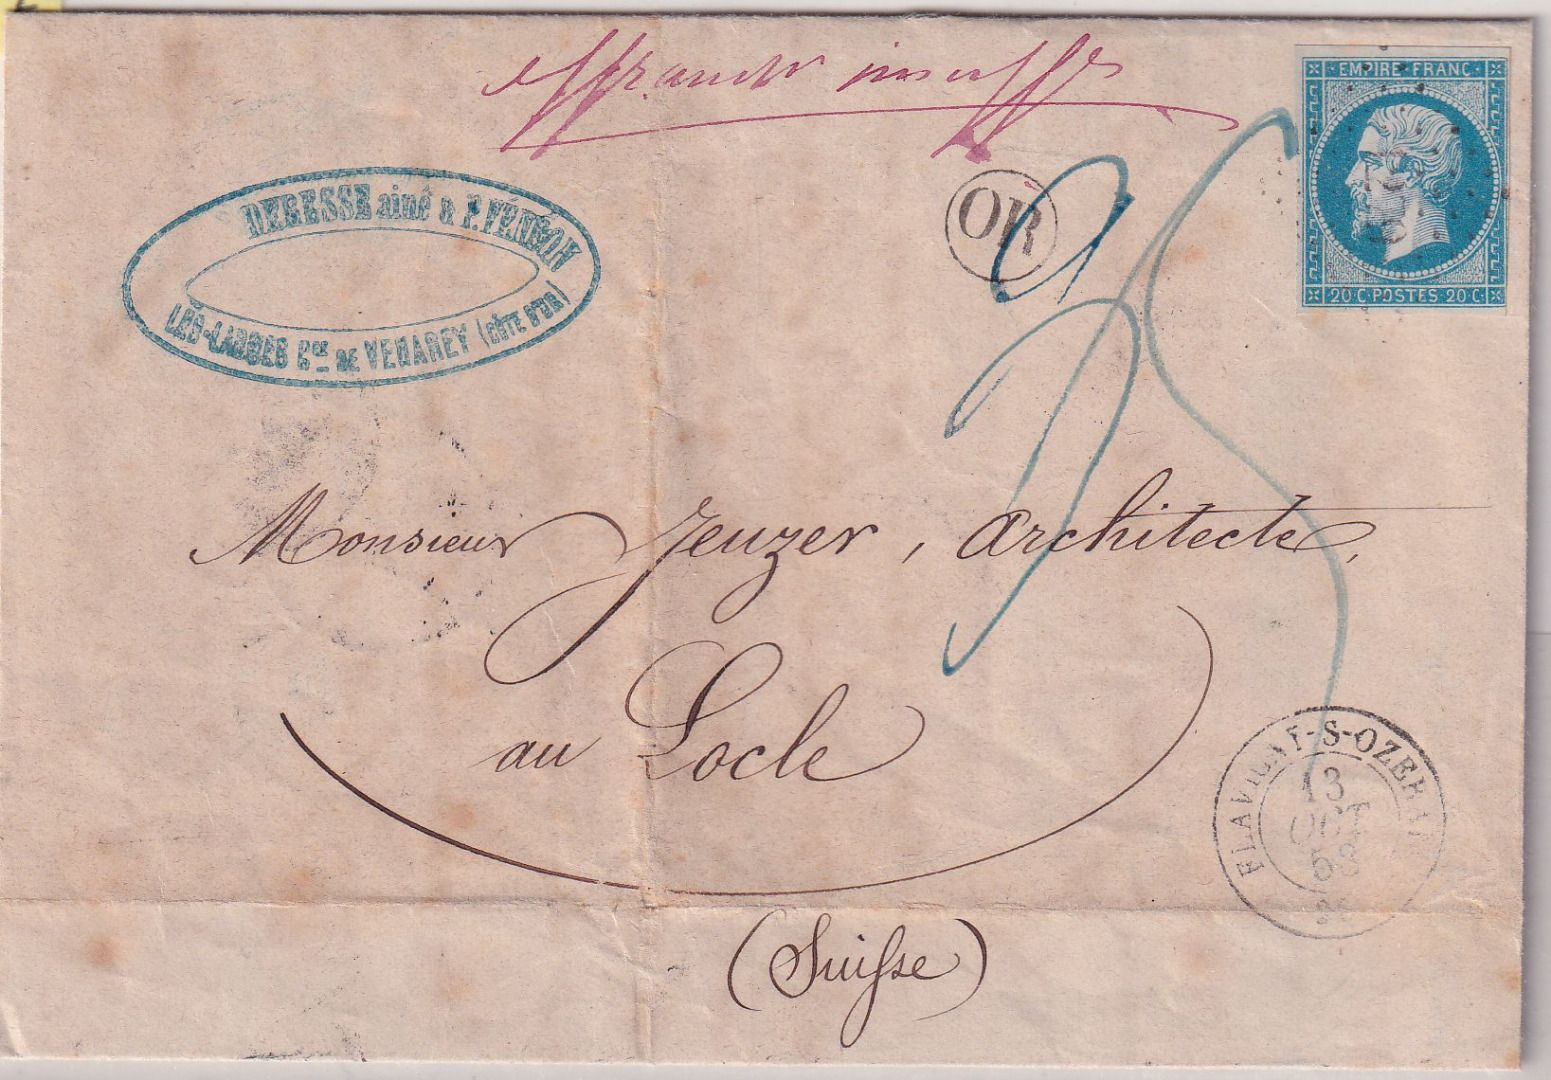 affranchi insuff
EMPIRE FRANC
20 C POSTES 20 C
OR
DERESSE aîné & F.
LES-LAUMES Cne DE VENAREY (CÔTE D'OR)
Monsieur Jeuzer, Architecte,
au Locle
(Suisse)
FLAVIGNY-S-OZERAIN
13
OCT
58